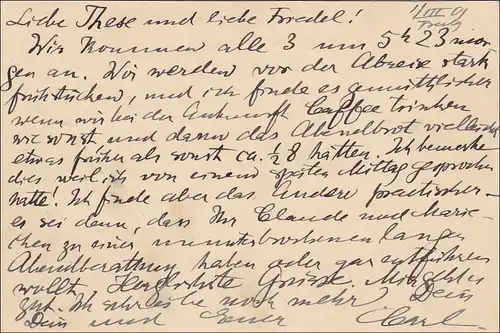 Liebe These und liebe Friedel!
1/III 01
Wir kommen alle 3 um 5h 23 mor
gen an. Wir werden vor der Abreise stark
frühstücken, und ich finde es gemüthlicher
wenn wir bei der Ankunft Caffee trinken
wie sonst und dann das Abendbrot vielleicht
etwas früher als sonst ca. ½ 8 hätten. Ich bemerke
dies weil ich von einem späten Mittag gesprochen
hatte! Ich finde aber das Andere practischer
es sei denn, dass Ihr Claude und Marie-
chen zu einer ununterbrochenen langen
Abendberathung haben oder gar entführen
wollt. Herzlichste Grüsse.
Ich
noch mehr Dein
Dein und Euer Carl